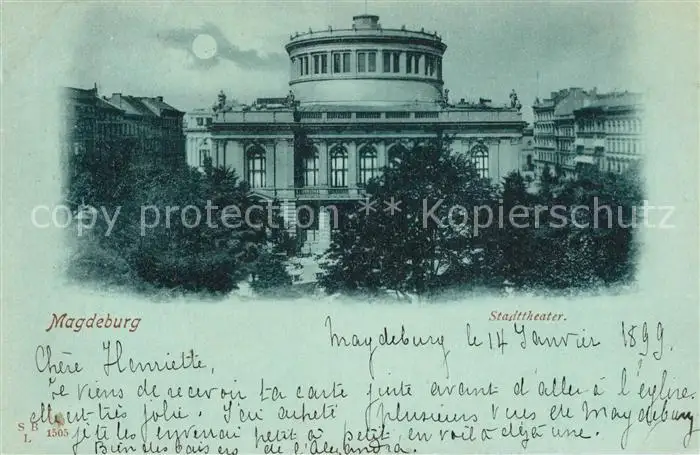 copy protection ** Kopierschutz
Magdeburg
Stadttheater.
Magdeburg le 14 Janvier 1899.
Chère Henriette,
Je viens de recevoir ta carte juste avant d'aller à l'église.
elle est très jolie. J'ai acheté plusieurs vues de Magdeburg
je te les enverrai petit à petit, en voilà déjà une.
Bien des baisers de l'Alexandra.
S B
L 1505